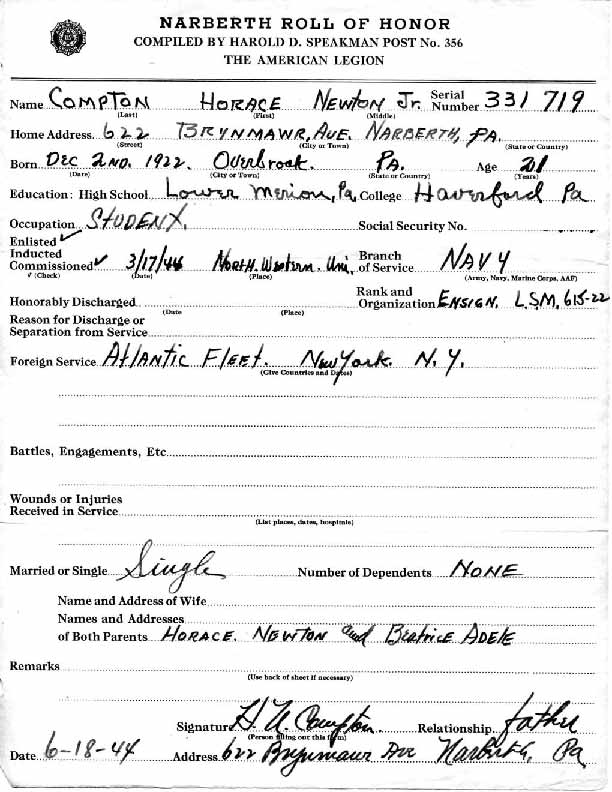 NARBERTH ROLL OF HONOR
COMPILED BY HAROLD D. SPEAKMAN POST No. 356
THE AMERICAN LEGION
Name COMPTON HORACE NEWTON Jr. Serial Number 331 719
(Last) (First) (Middle)
Home Address 622 BRYNMAWR, AVE. NARBERTH, PA.
(Street) (City or Town) (State or Country)
Born DEC 2ND. 1922. Overbrook. PA. Age 21
(Date) (City or Town) (State or Country) (Years)
Education: High School Lower Merion, Pa, College Haverford Pa
Occupation STUDENT. Social Security No.
Enlisted ✓
Inducted
Commissioned ✓ 3/17/44 NORTH. Western. Uni, Branch of Service NAVY
√ (Check) (Date) (Place) (Army, Navy, Marine Corps, AAF)
Honorably Discharged Rank and Organization ENSIGN. L.S.M. 615-22
(Date (Place)
Reason for Discharge or
Separation from Service
Foreign Service Atlantic FLEET. New York. N.Y.
(Give Countries and Dates)
Battles, Engagements, Etc
Wounds or Injuries
Received in Service
(List places, dates, hospitals)
Married or Single Single Number of Dependents NONE
Name and Address of Wife
Names and Addresses
of Both Parents HORACE. NEWTON and Beatrice ADELE
Remarks
(Use back of sheet if necessary)
Signature H N Compton. Relationship father
(Person filling out this form)
Date 6-18-44 Address 622 Brynmawr Ave Narberth, Pa